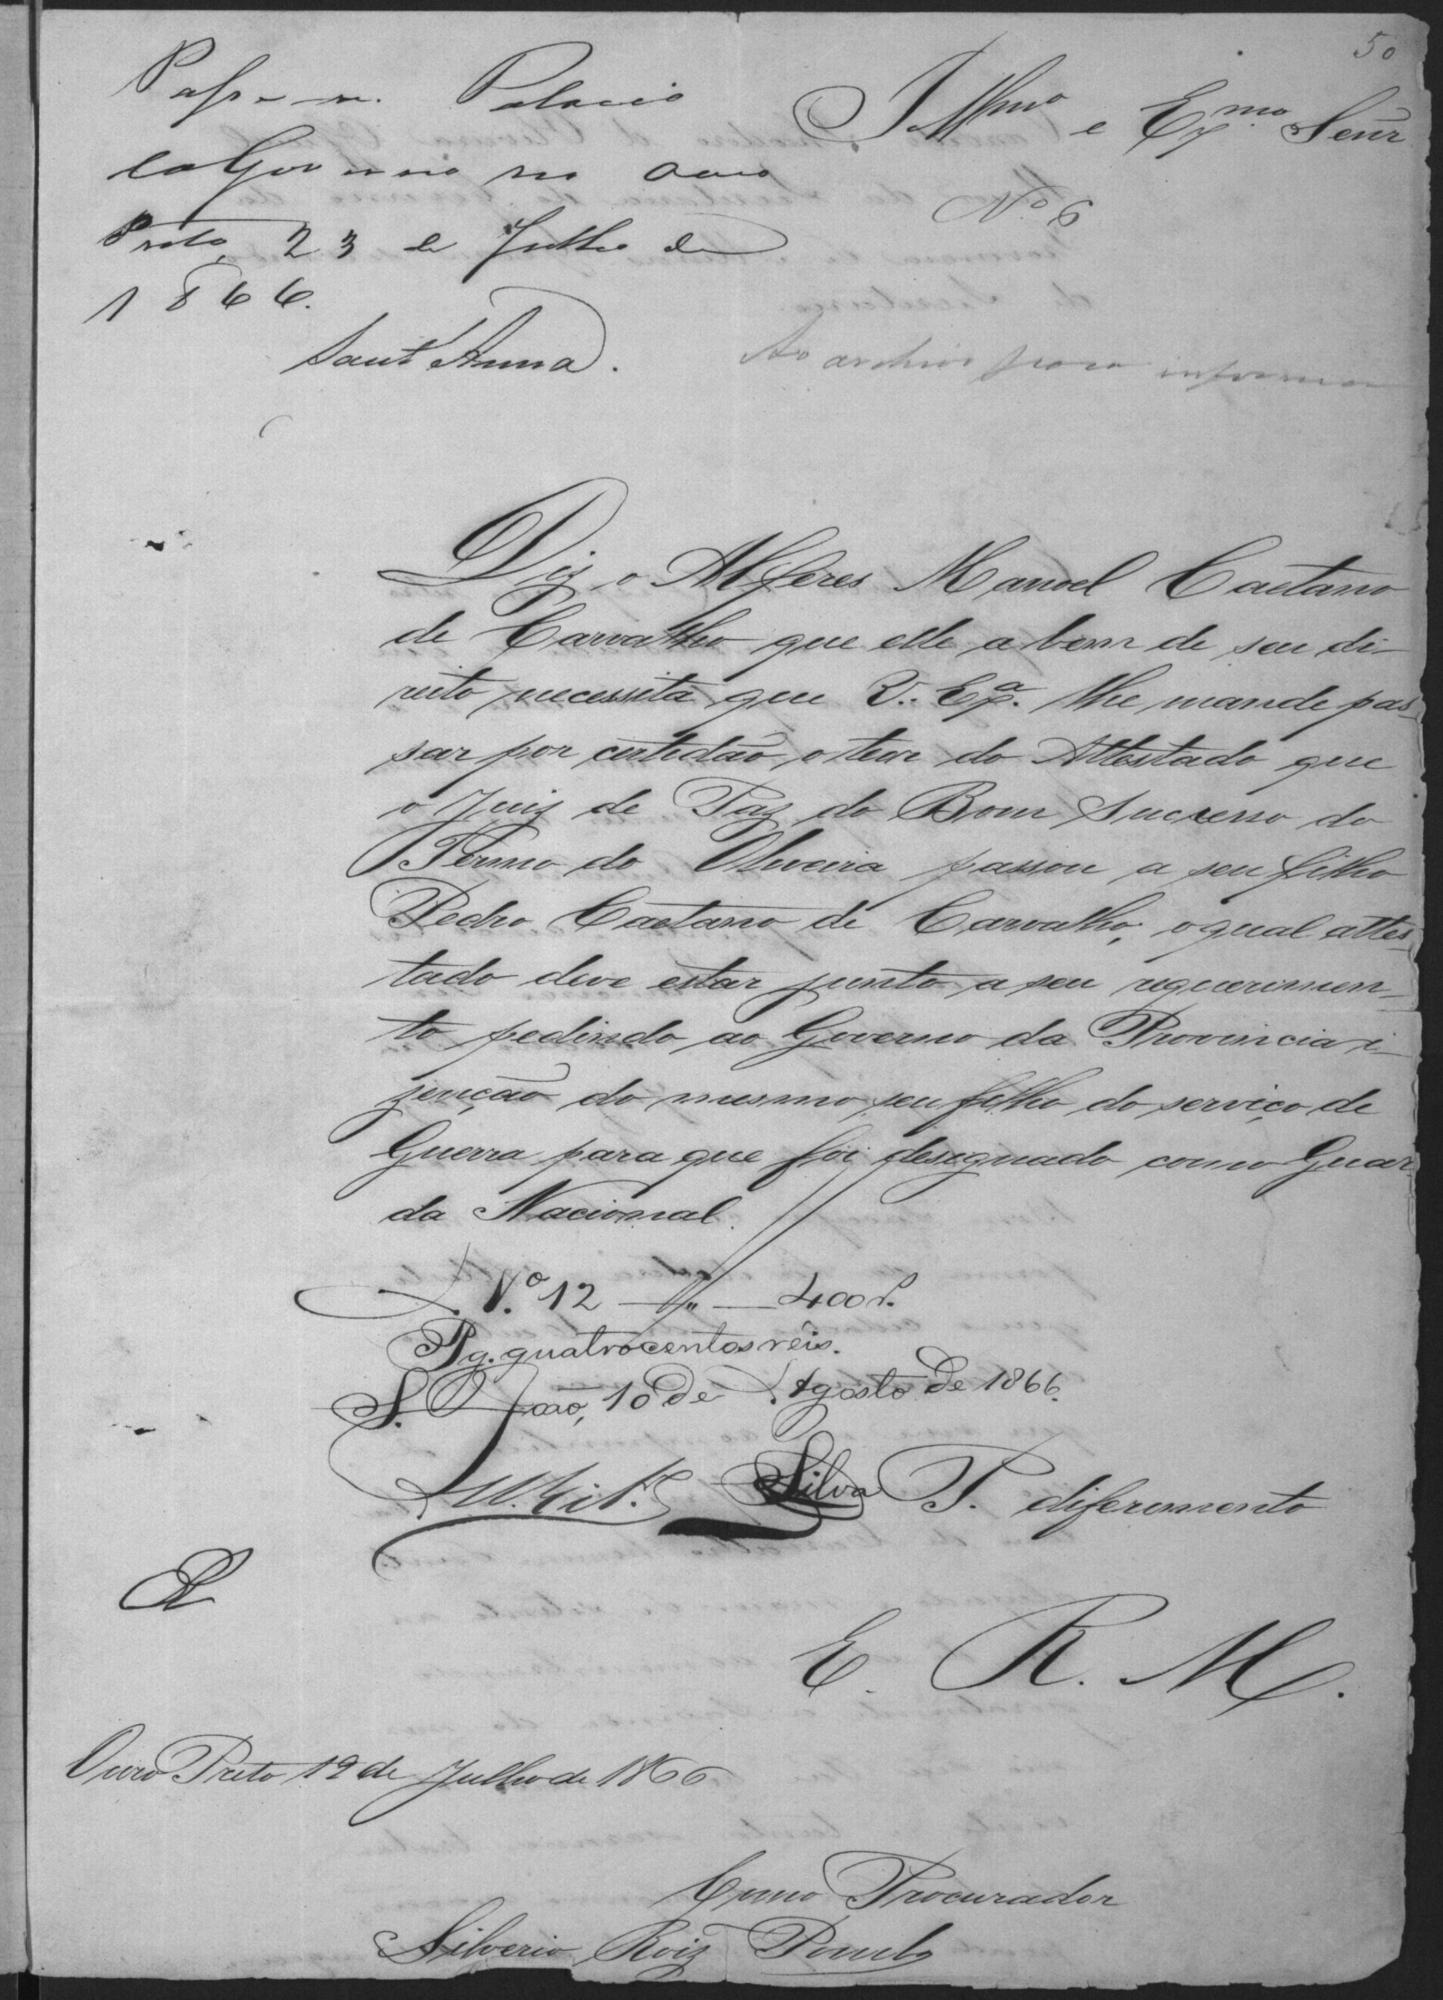 50
Passe-se. Palacio
do Governo no Ouro
Preto, 23 de Julho de
1866.
Sant'Anna.
Illmo e Exmo Senr
No 6
Ao archivo para informar
Diz o Alferes Manoel Caetano
de Carvalho que elle a bem de seu di-
reito necessita que V. Exa. lhe mande pas-
sar por certidão o teor do Attestado que
o Juiz de Paz do Bom Successo do
Termo do Oliveira passou a seu filho
Pedro Caetano de Carvalho, o qual attes-
tado deve estar junto a seu requerimen-
to pedindo ao Governo da Provincia i-
zenção do mesmo seu filho do serviço de
Guerra para que foi designado como Guar-
da Nacional.
N.o 12 400 r.
Pg. quatrocentos réis.
S. João, 10 de Agosto de 1866.
Silva
P. diferimento
E. R. M.
Ouro Preto 19 de Julho de 1866
Como Procurador
Silverio Roiz